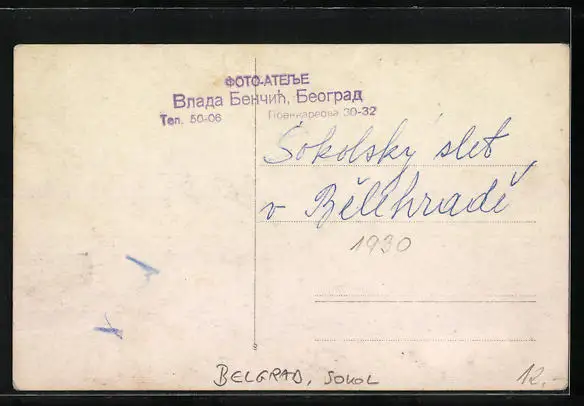 ФОТО-АТЕЉЕ
Влада Бенчић, Београд
Тел. 50-06 Поенкареова 30-32
Sokolský slet
v Bělehradě
1930
BELGRAD, SOKOL
12,-